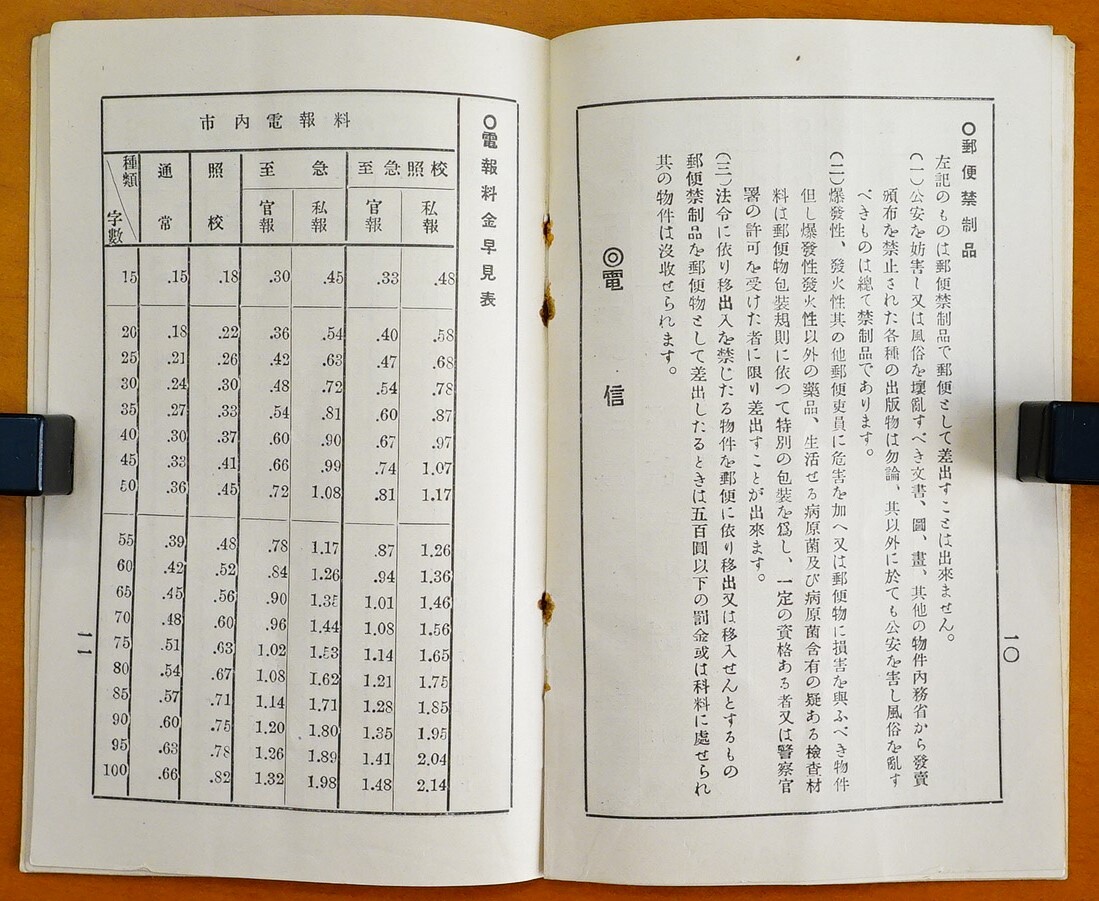 〇郵便禁制品
左記のものは郵便禁制品で郵便として差出すことは出來ません。
(一)公安を妨害し又は風俗を壞亂すべき文書、圖、畫、其他の物件內務省から發賣
頒布を禁止された各種の出版物は勿論、其以外に於ても公安を害し風俗を亂す
べきものは總て禁制品であります。
(二)爆發性、發火性其の他郵便吏員に危害を加へ又は郵便物に損害を與ふべき物件
但し爆發性發火性以外の藥品、生活せる病原菌及び病原菌含有の疑ある檢査材
料は郵便物包裝規則に依つて特別の包裝を爲し、一定の資格ある者又は警察官
署の許可を受けた者に限り差出すことが出來ます。
(三)法令に依り移出入を禁じたる物件を郵便に依り移出又は移入せんとするもの
郵便禁制品を郵便物として差出したるときは五百圓以下の罰金或は科料に處せられ
其の物件は沒收せられます。
◎電信
一〇
〇電報料金早見表
市內電報料
種類 字數 通常 照校 至急 至急照校
官報 私報 官報 私報
15 .15 .18 .30 .45 .33 .48
20 .18 .22 .36 .54 .40 .58
25 .21 .26 .42 .63 .47 .68
30 .24 .30 .48 .72 .54 .78
35 .27 .33 .54 .81 .60 .87
40 .30 .37 .60 .90 .67 .97
45 .33 .41 .66 .99 .74 1.07
50 .36 .45 .72 1.08 .81 1.17
55 .39 .48 .78 1.17 .87 1.26
60 .42 .52 .84 1.26 .94 1.36
65 .45 .56 .90 1.35 1.01 1.46
70 .48 .60 .96 1.44 1.08 1.56
75 .51 .63 1.02 1.53 1.14 1.65
80 .54 .67 1.08 1.62 1.21 1.75
85 .57 .71 1.14 1.71 1.28 1.85
90 .60 .75 1.20 1.80 1.35 1.95
95 .63 .78 1.26 1.89 1.41 2.04
100 .66 .82 1.32 1.98 1.48 2.14
一一